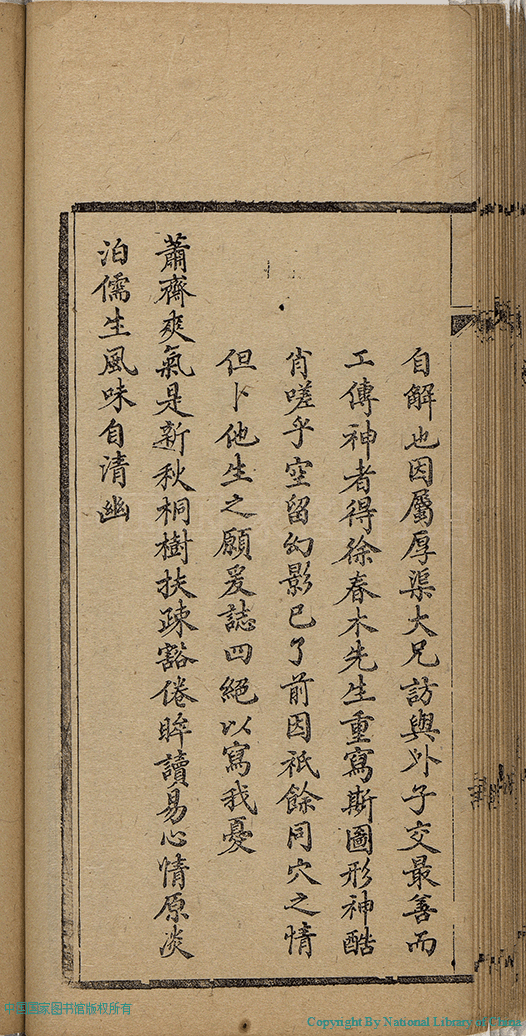 自解也因屬厚渠大兄訪與外子交最善而
工傳神者得徐春木先生重寫斯圖形神酷
肖嗟乎空留幻影已了前因祇餘同穴之情
但卜他生之願爰誌四絕以寫我憂
蕭齋爽氣是新秋桐樹扶疎豁倦眸讀易心情原淡
泊儒生風味自清幽
中国国家图书馆版权所有
Copyright By National Library of China